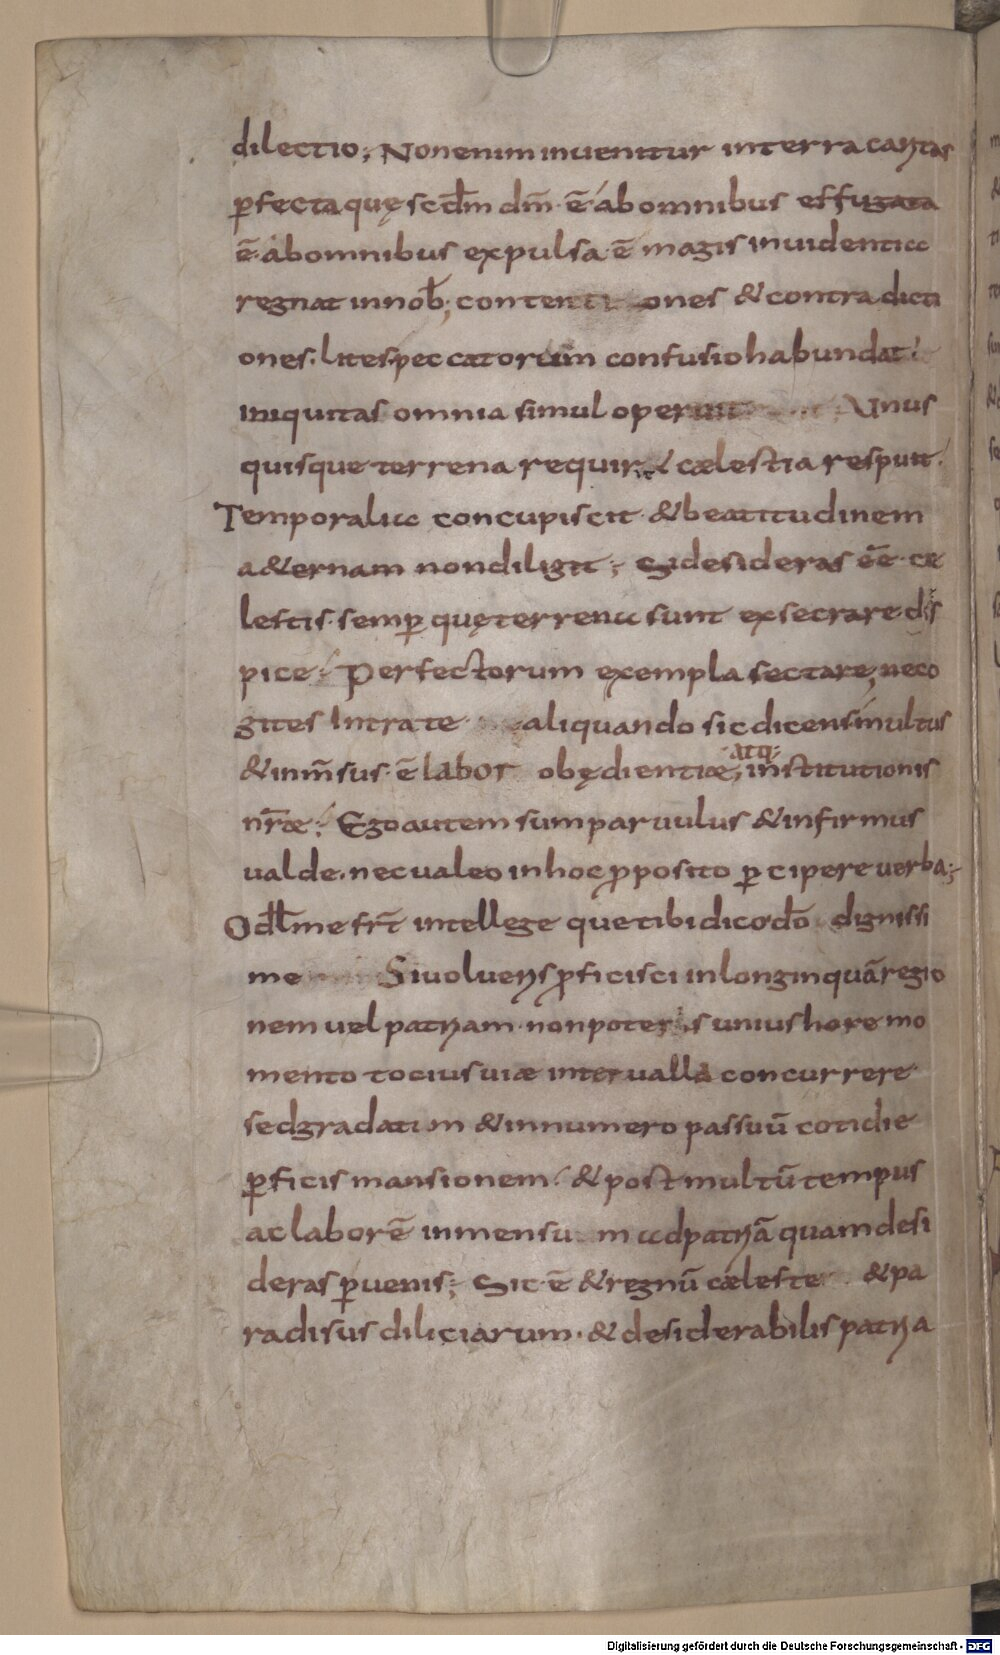 dilectio; Nonenim inuenitur interra caritas
ꝑfecta quę scd̄m dm̄ · ē ab omnibus effugata
ē · ab omnibus expulsa · ē magis inuidentia
regnat innob̄; contentiones & contradicti
ones. lites peccatorum confusio habundat
iniquitas omnia simul operuit Unus
quisque terrena requirit cælestia respuit.
Temporalia concupiscit · & beatitudinem
a&ernam non diligit; Si desideras eē · cæ
lestis · semꝑ quę terrena sunt exsecrare dis
pice Perfectorum exempla sectare, neco
gites Intrate aliquando sic dicens multus
& inm̄sus · ē labor obędientiæ, atq; institutionis
nr̄æ; Ego autem sum paruulus & infirmus
ualde · nec ualeo in hoc ꝓposito ꝑcipere uerba;
O dl̄me fr̄t intellege que tibi dico · dō dignissi
me Si uolueris ꝓficisci in longinquā regio
nem uel patriam · non poteris unius hore mo
mento tocius uiæ interualla concurrere
sed gradatim & innumero passuū cotidie
ꝑficis mansionem & post multū tempus
ac laborē inmensum ad patriā quam desi
deras ꝑuenis; Sic · ē & regnū cæleste & pa
radisus diliciarum · & desiderabilis patria
Digitalisierung gefördert durch die Deutsche Forschungsgemeinschaft - DFG